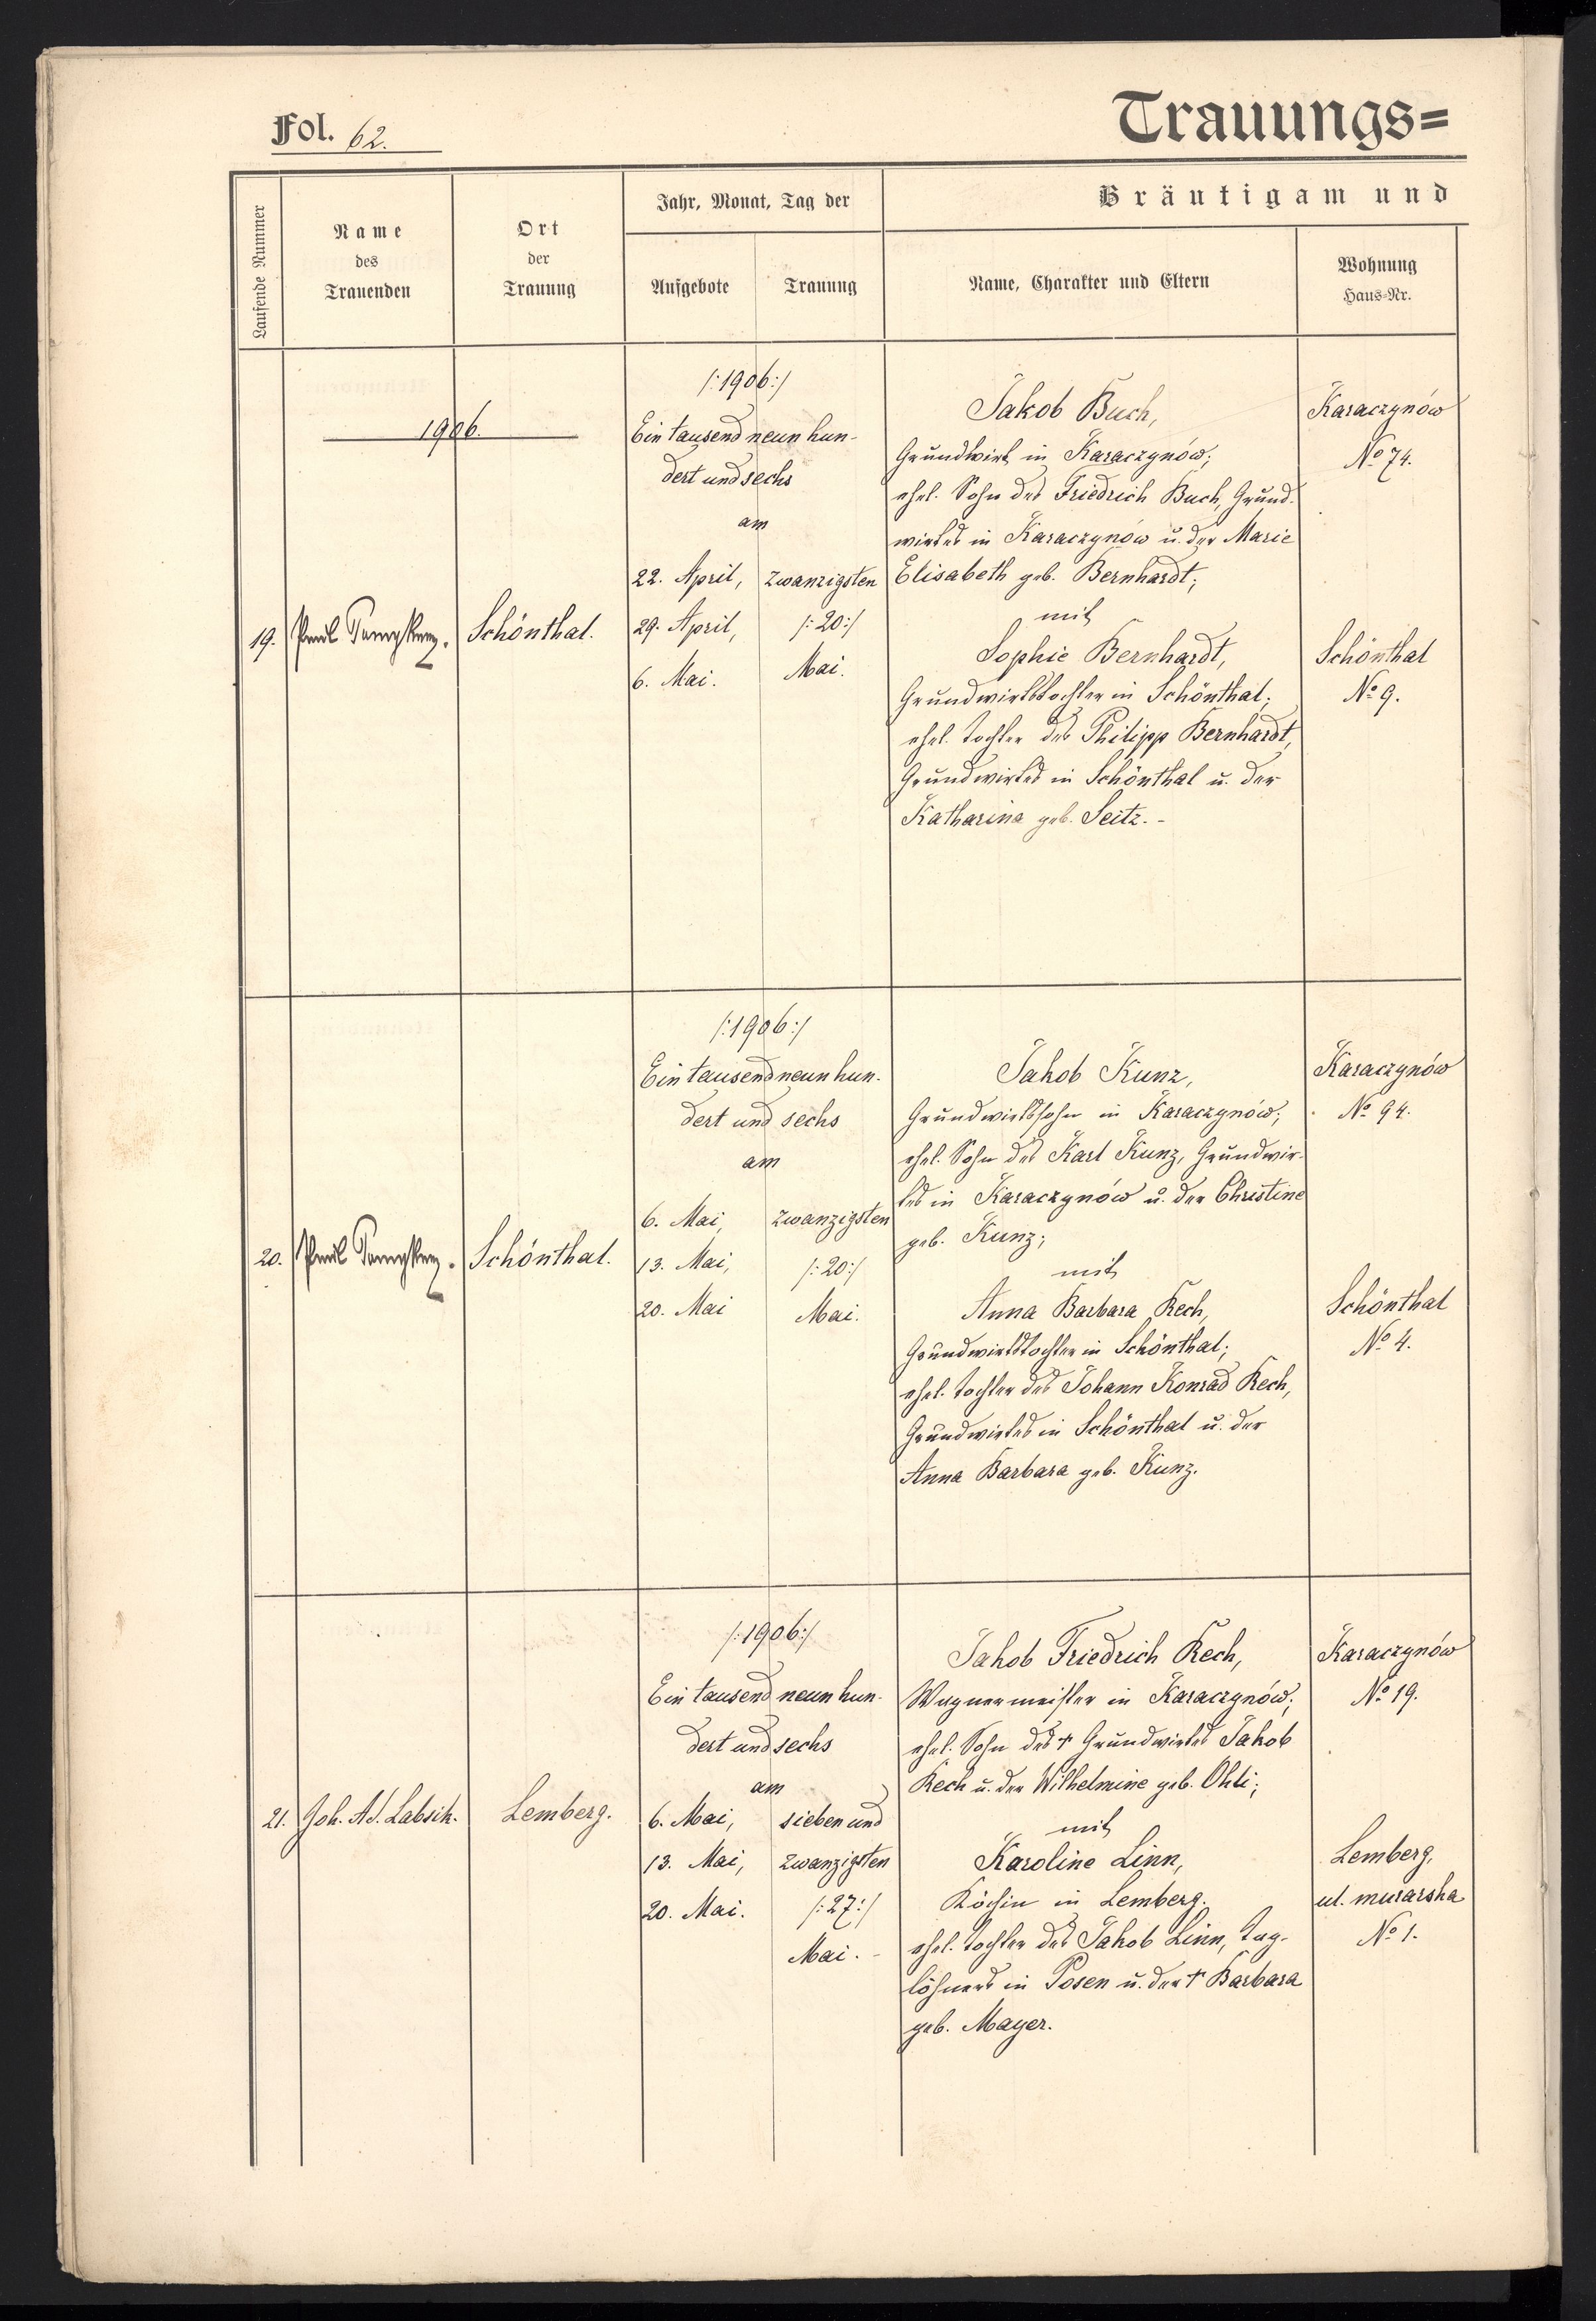 Fol. 62.
Trauungs=
Laufende Nummer
Name
des
Trauenden
Ort
der
Trauung
Jahr, Monat, Tag der
Aufgebote
Trauung
Bräutigam und
Name, Charakter und Eltern
Wohnung
Haus-Nr.
1906.
19.
Schönthal.
/:1906:/
Ein tausend neun hun-
dert und sechs
am
22. April,
29. April,
6. Mai.
zwanzigsten
/:20:/
Mai.
Jakob Buch,
Grundwirt in Karaczynów;
ehel. Sohn des Friedrich Buch, Grund-
wirtes in Karaczynów u. der Marie
Elisabeth geb. Bernhardt;
mit
Sophie Bernhardt,
Grundwirtstochter in Schönthal;
ehel. Tochter des Philipp Bernhardt,
Grundwirtes in Schönthal u. der
Katharina geb. Seitz. -
Karaczynów
No 74.
Schönthal
No 9.
20.
Schönthal.
/:1906:/
Ein tausend neun hun-
dert und sechs
am
6. Mai,
13. Mai,
20. Mai
zwanzigsten
/:20:/
Mai.
Jakob Kunz,
Grundwirtssohn in Karaczynów;
ehel. Sohn des Karl Kunz, Grundwir-
tes in Karaczynów u. der Christine
geb. Kunz;
mit
Anna Barbara Rech,
Grundwirtstochter in Schönthal;
ehel. Tochter des Johann Konrad Rech,
Grundwirtes in Schönthal u. der
Anna Barbara geb. Kunz.
Karaczynów
No 94.
Schönthal
No 4.
21.
Joh. Ad. Labsik.
Lemberg.
/:1906:/
Ein tausend neun hun-
dert und sechs
am
6. Mai,
13. Mai,
20. Mai.
sieben und
zwanzigsten
/:27:/
Mai. -
Jakob Friedrich Rech,
Wagnermeister in Karaczynów;
ehel. Sohn des † Grundwirtes Jakob
Rech u. der Wilhelmine geb. Ohli;
mit
Karoline Linn,
Köchin in Lemberg.
ehel. Tochter des Jakob Linn, Tag-
löhners in Posen u. der † Barbara
geb. Mayer.
Karaczynów
No 19.
Lemberg,
ul. murarska
No 1.